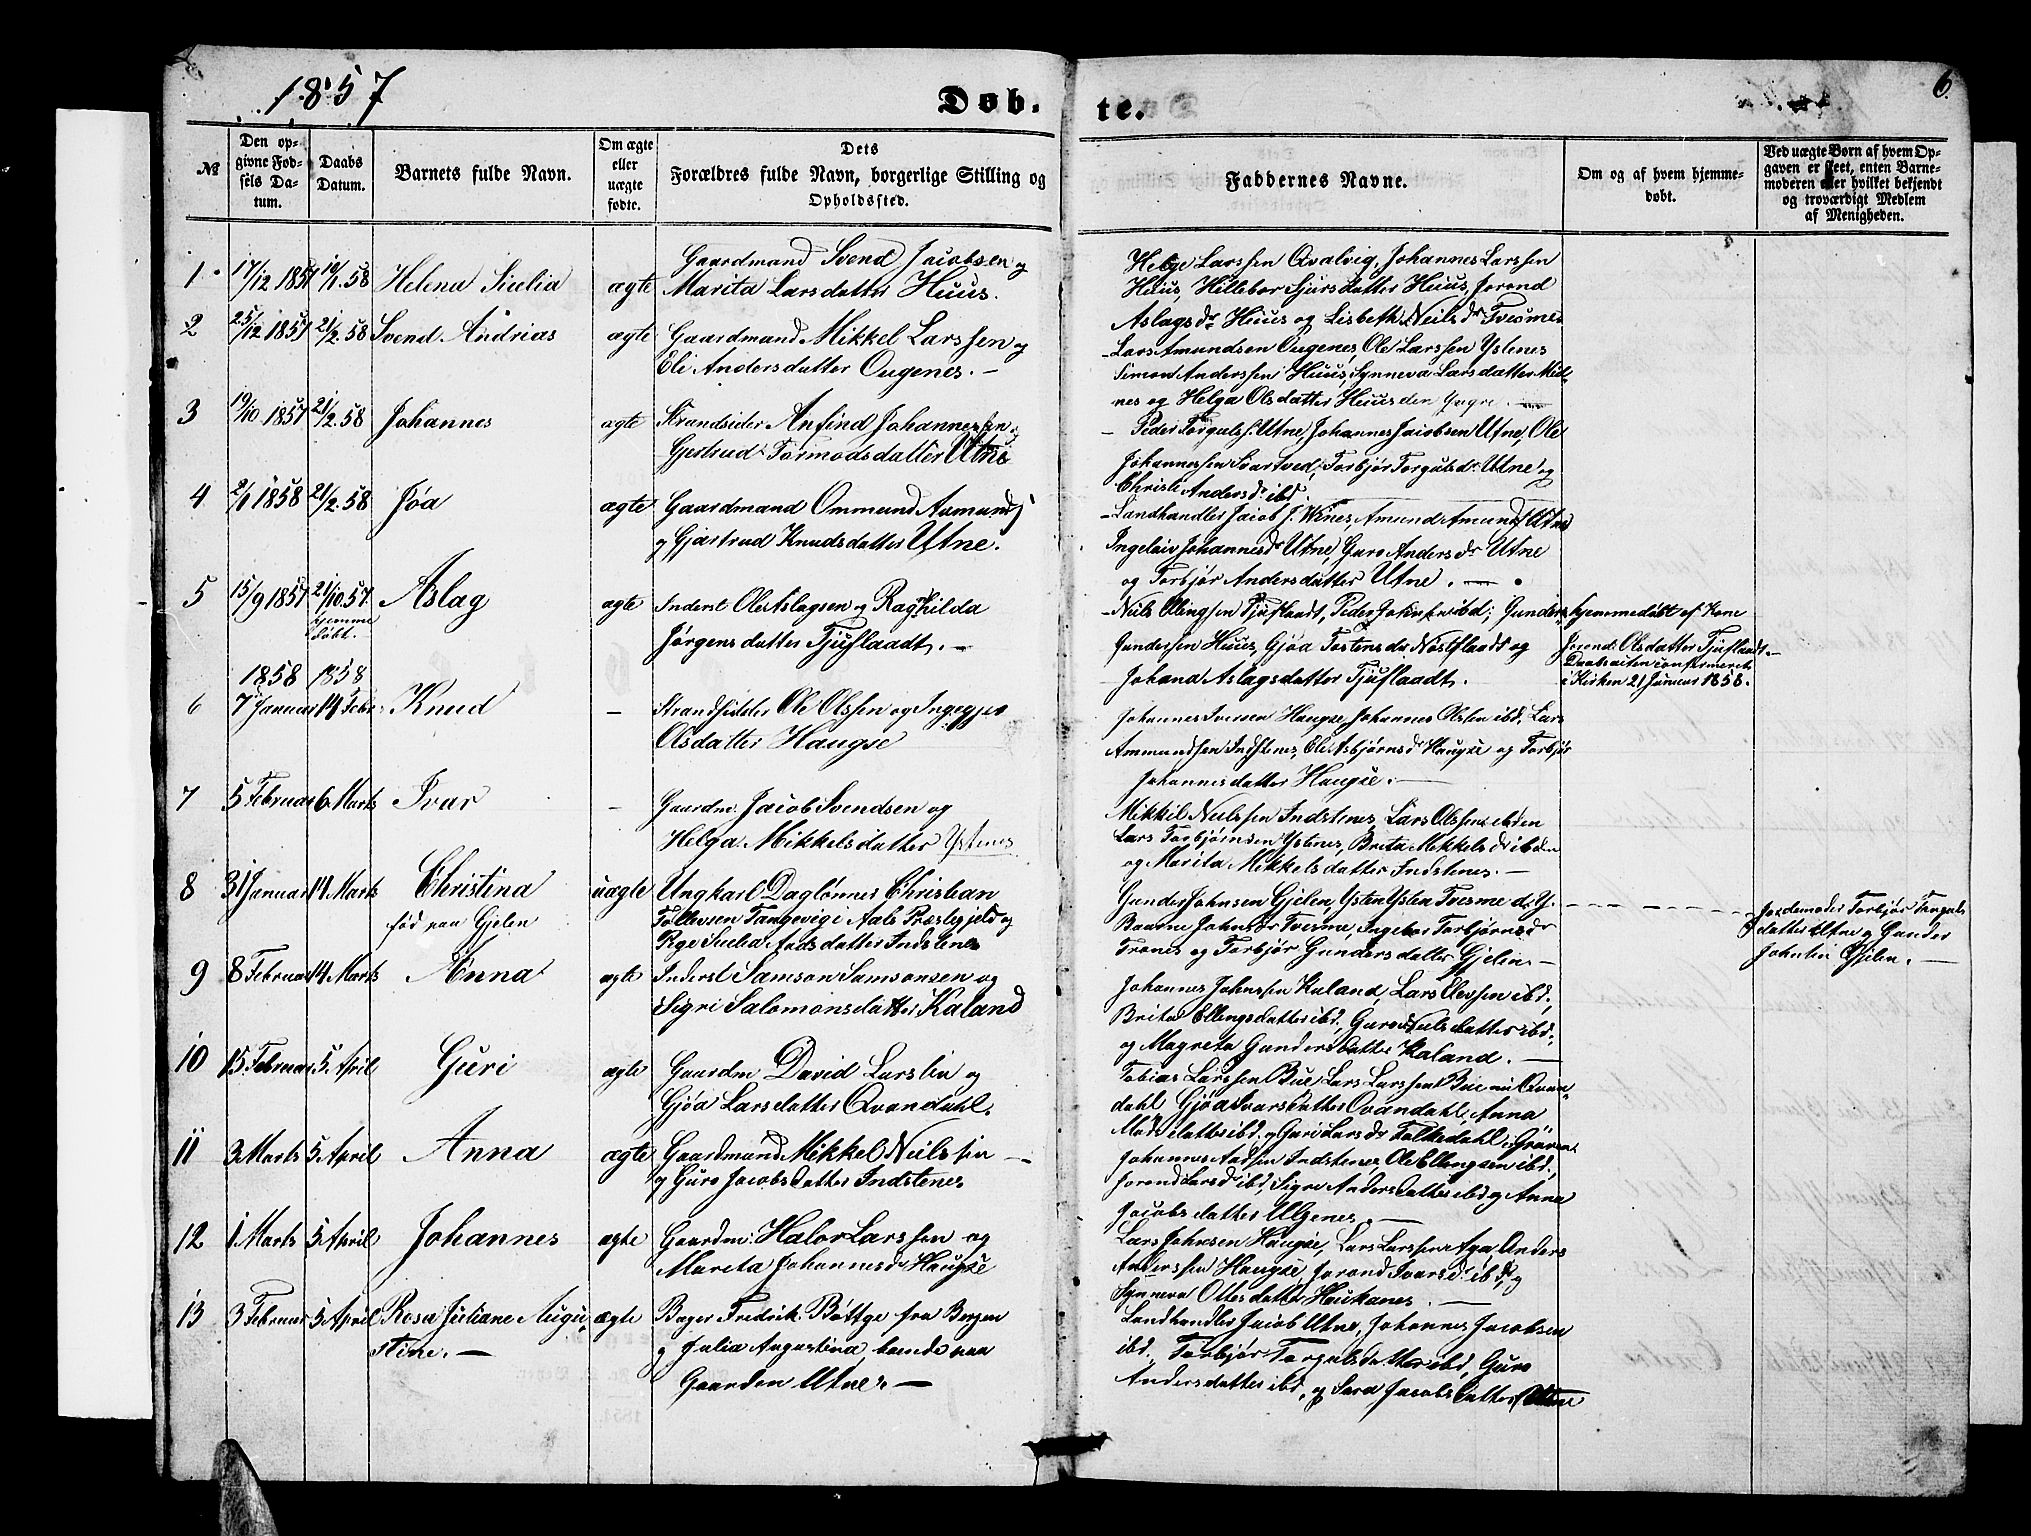 1857
Døb.
te.
6.
№
Den opgivne Fødsels Datum.
Daabs Datum.
Barnets fulde Navn.
Om ægte eller uægte fødte.
Dets Forældres fulde Navn, borgerlige Stilling og Opholdssted.
Faddernes Navne.
Om og af hvem hjemmedøbt.
Ved uægte Børn af hvem Opgaven er skeet, enten Barnemoderen eller hvilket bekjendt og troværdigt Medlem af Menigheden.
1. 17/12 1857 58 Helena Siulia ægte Gaardmand Svend Jacobsen og
Marita Larsdatter Huus.
Helge Larssen Qvalvig, Johannes Larssen
Huus, Hillebor Sjursdatter Huus, Jorond
Aslagsdr Huus og Lisbeth Neilsdr Tvesme
2 25/12 1857 21/2.58 Svend Andrias ægte Gaardmand Mikkel Larssen og
Eli Andersdatter Ougenes.-
Lars Amundsen Ougenes, Ole Larssen Ystenes
Simon Anderssen Huus, Synneva Larsdatter Mid-
nes og Helga Olsdatter Huus den Yngre.
3 19/10 1857 21/2.58 Johannes ægte Strandsider Anfind Johannessen
Gjertrud Tormodsdatter Utne
Peder Torgulss. Utne, Johannes Jacobsen Utne, Ole
Johannessen Svartved, Torbjør Torgulsdr Utne og
Christi Andersdr ibd.
4 2/1 1858 21/2.58 Jóa ægte Gaardmand Ommund
og Gjærtrud Knudsdatter Utne.
Landhandler Jacob J. Wines, Amund Utne
Johannesdr Utne, Guro Andersdr Utne
og Torbjør Andersdatter Utne.
5 15/9 1857 21/10.57. hjemme døbt. Aslag ægte Inderst Ole Aslagsen og Raghilda
Jørgensdatter Tjuflaadt.
Neils Tjuflaadt, Peder ibd; Gunder
Gundersen Huus, Gjøa Tostensdr og
Johand Aslagsdatter Tjuflaadt.
hjemmedøbt af Kone
Jorond Olsdatter Tjuflaadt.
Daabsakten confirmeret
i Kirken 21 Januar 1858.
1858 1858
6 7 Januar 14 Febr: Knud - Strandsidder Ole Olssen og
Olsdatter Haugse
Johannes Iversen Haugse, Johannes Olsen ibd, Lars
Ammundsen Indstenes, Eli Asbjørnsdr Haugse og Torbjør
Johannesdatter Haugse.
7 5 Februar 6 Marts Ivar - Gaardm: Jacob Svendsen og
Helga Mikkelsdatter Ystenes
Mikkel Neilssen Indstenes, Lars Olssen ibden
Lars Torbjørnsen Ystenes, Brita Mikkelsdr ibden
og Marita Mikkelsdatter Indstenes.-
8 31 Januar 14 Marts Christina uægte Ungkarl Daglønner Christian
fød paa Gjelen Tollevsen Tangevig i Aals Præstegjeld og
Pige Siulia Andsdatter Indstenes
Gunder Johnsen Gjelen, Ysten Ysten Tvesme d. Y.
Johnsdr Tvesme, Ingebor Torbjørnsdr
Trones og Torbjør Gundersdatter Gjelen.-
Jordemoder Torbjør Torguls
datter Utne og Gunder
Johnsen Gjelen.
9 8 Februar 14 Marts Anna ægte Inderst Samson Samsonsen og
Sigri Salomonsdatter Kaland
Johannes Johnssen Kaland, Lars Olevsen ibd,
Brita Ellingsdatter ibd, Guro Neilsdatter ibd
og Magreta Gundersdatter Kaland.
10 15 Februar 5 April Guri ægte Gaardm David Larssen og
Gjøa Larsdatter Qvandahl.
Tobias Larssen Bue, Lars Larssen Bue Qvan-
dahl Gjøa Ivarsdatter Qvandahl, Anna
Madsdatter ibd. og Guri Larsdr Folkedahl i Graven
11 3 Marts 5 April Anna ægte Gaardmand Mikkel Neilssen
og Guro Jacobsdatter Indstenes
Johannes Aadsen Indstenes, Ole Ellingsen ibd,
Jorond Larsdr ibd, Sigre Andersdatter ibd og Anna
Jacobsdatter Ulgenes.
12 1 Marts 5 April Johannes ægte Gaardm: Halor Larssen og
Mareta Johannesdr Haugse
Lars Johnsen Haugse, Lars Larssen Aga, Anders
Anderssen Haugse, Jorond Ivarsdr ibd, og
Synneva Ottesdatter Houkanes.
13 3 Februar 5 April Rosa Juliane Augu-
stine.- ægte Bager Fredrik Bøttge fra Bergen
og Julia Augustina, paa
Gaarden Utne.-
Landhandler Jacob Utne, Johannes Jacobsen
ibd, Torbjør Torgulsdatter ibd, Guro
Andersdatter ibd, og Sara Jacobsdatter Utne